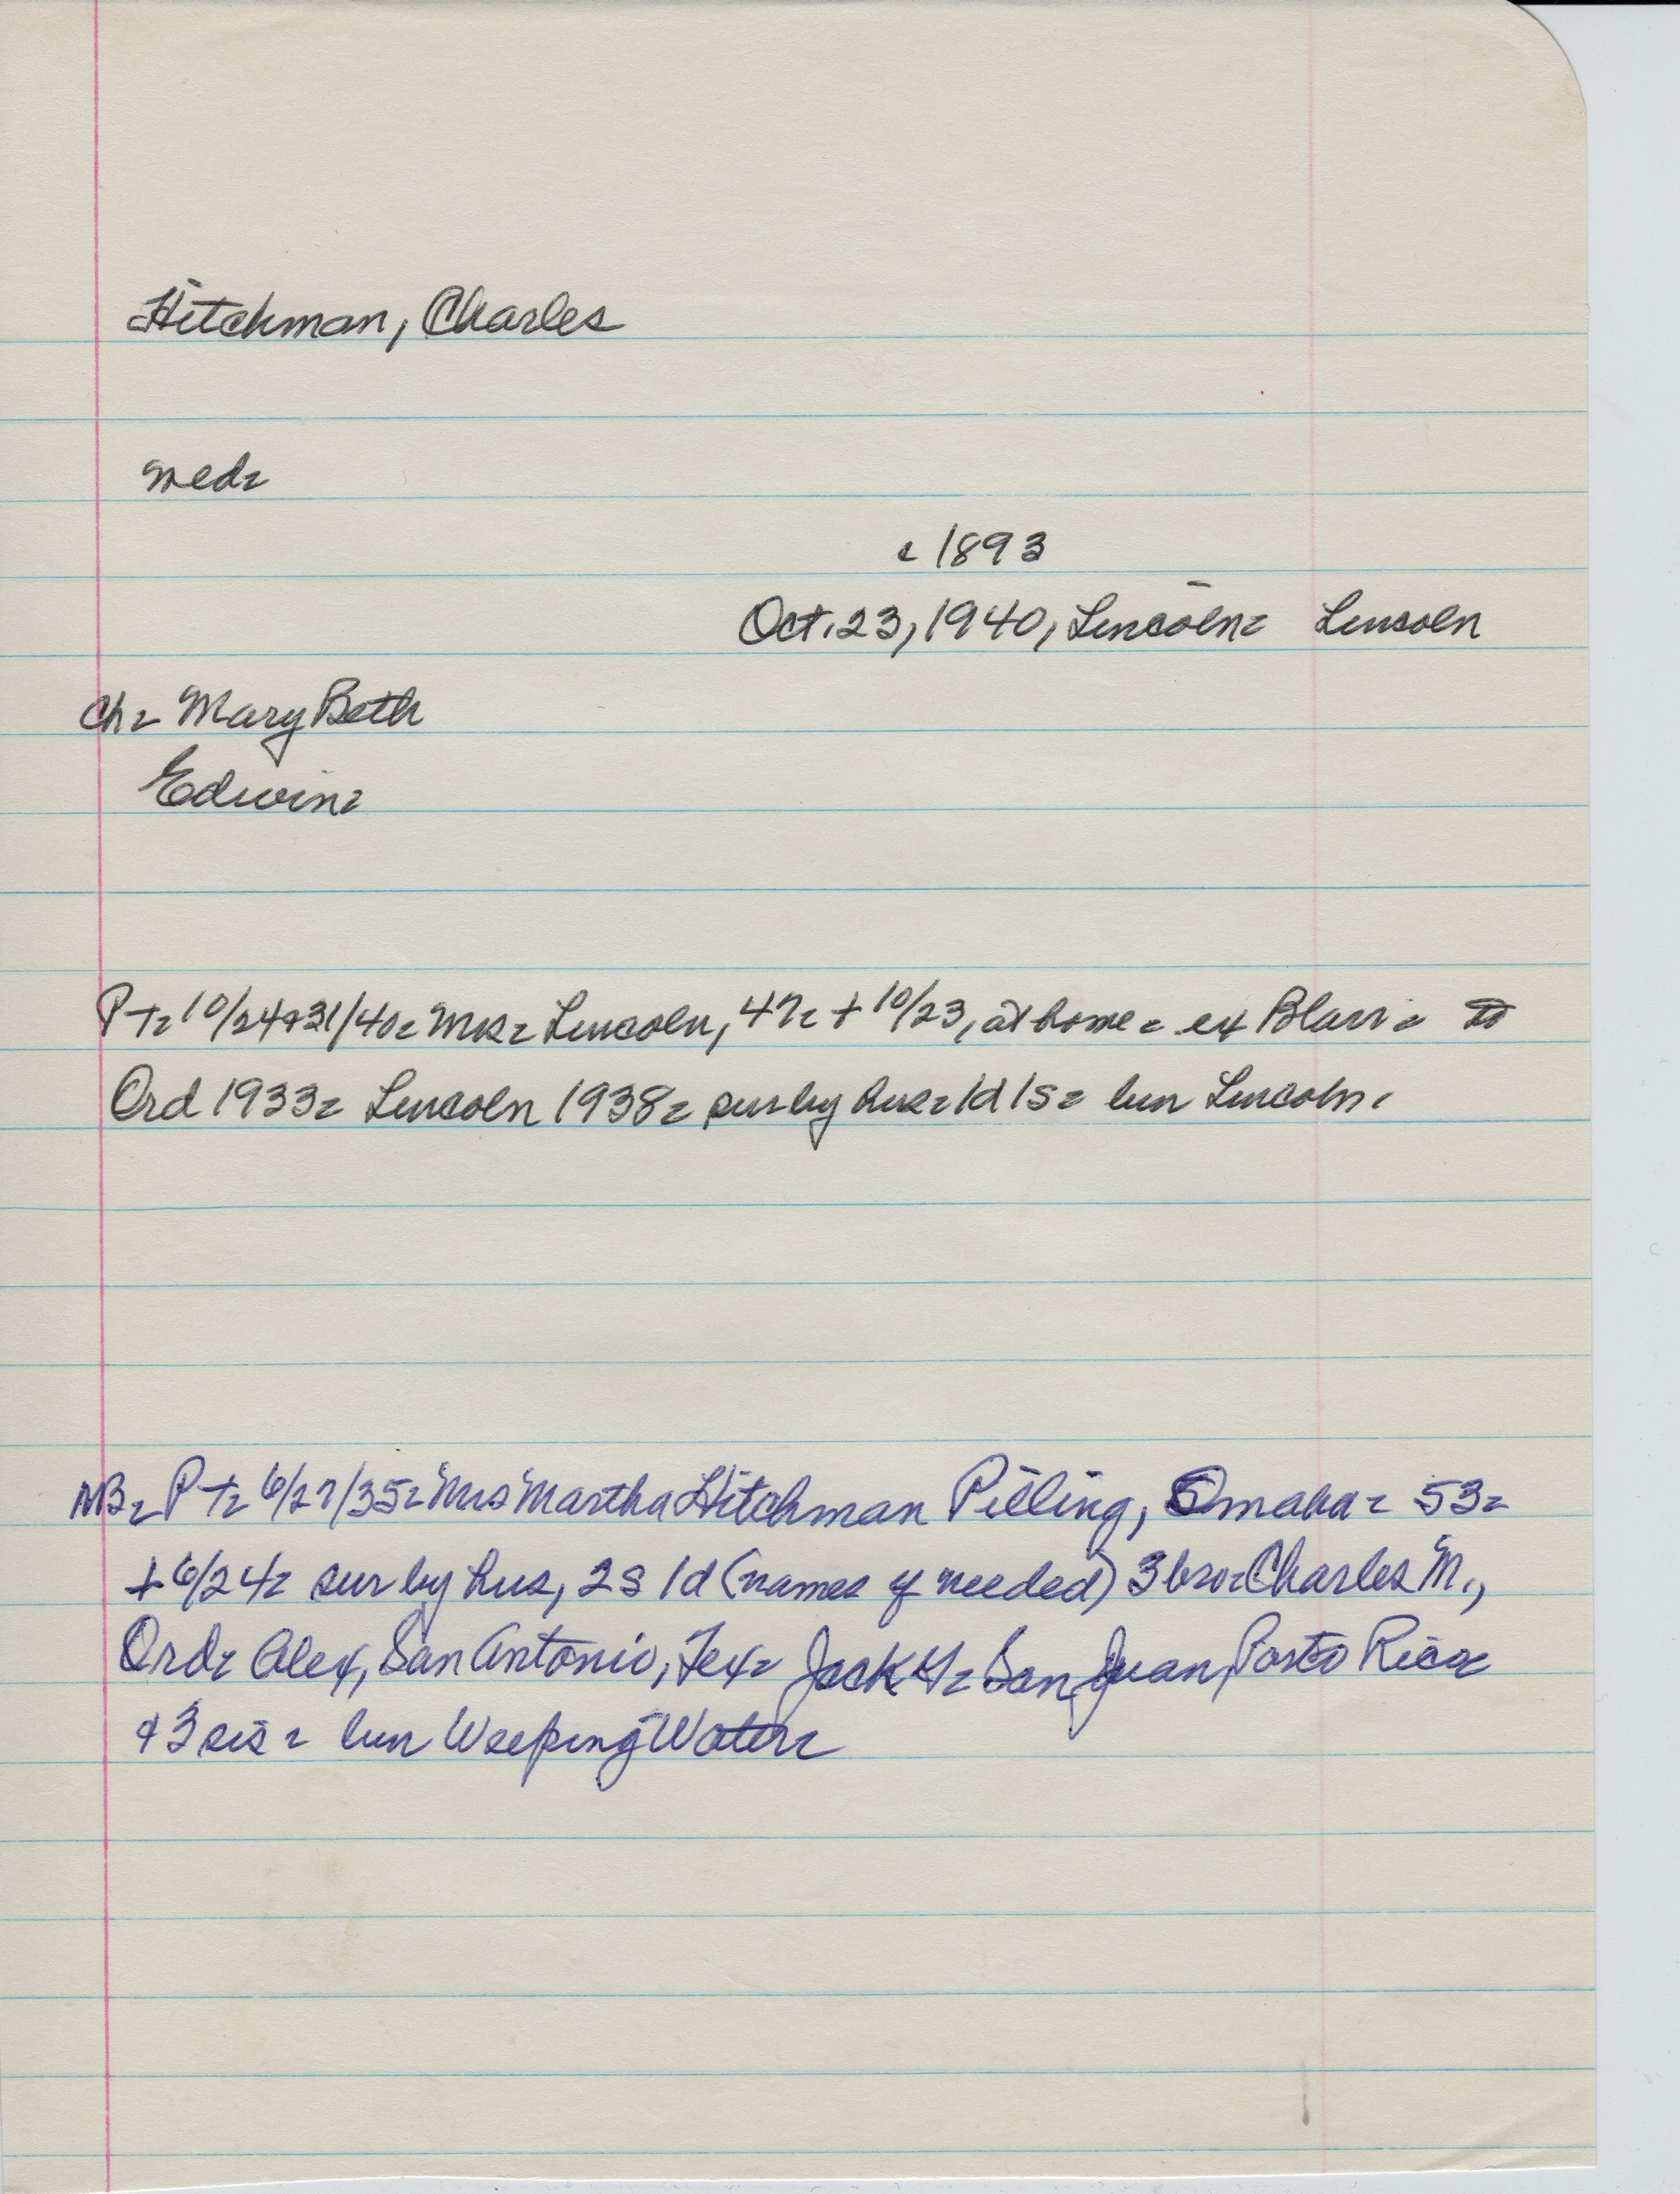 Hitchman, Charles
med=
c 1893
Oct. 23, 1940, Lincoln= Lincoln
Ch= Mary Beth
Edwin=
Pt= 10/24+31/40= Mrs= Lincoln, 47= + 10/23, at home= ex Blair= to
Ord 1933= Lincoln 1938= sur by hus= 1d 1s= bur Lincoln.
NB= Pt= 6/27/35= "Mrs" Martha Hitchman Pilling, Omaha= 53=
+ 6/24= sur by hus, 2s 1d (names if needed) 3 bro= Charles M.,
Ord= Alex, San Antonio, Tex= Jack Y= San Juan, Porto Rico=
& 3 sis= bur Weeping Water=